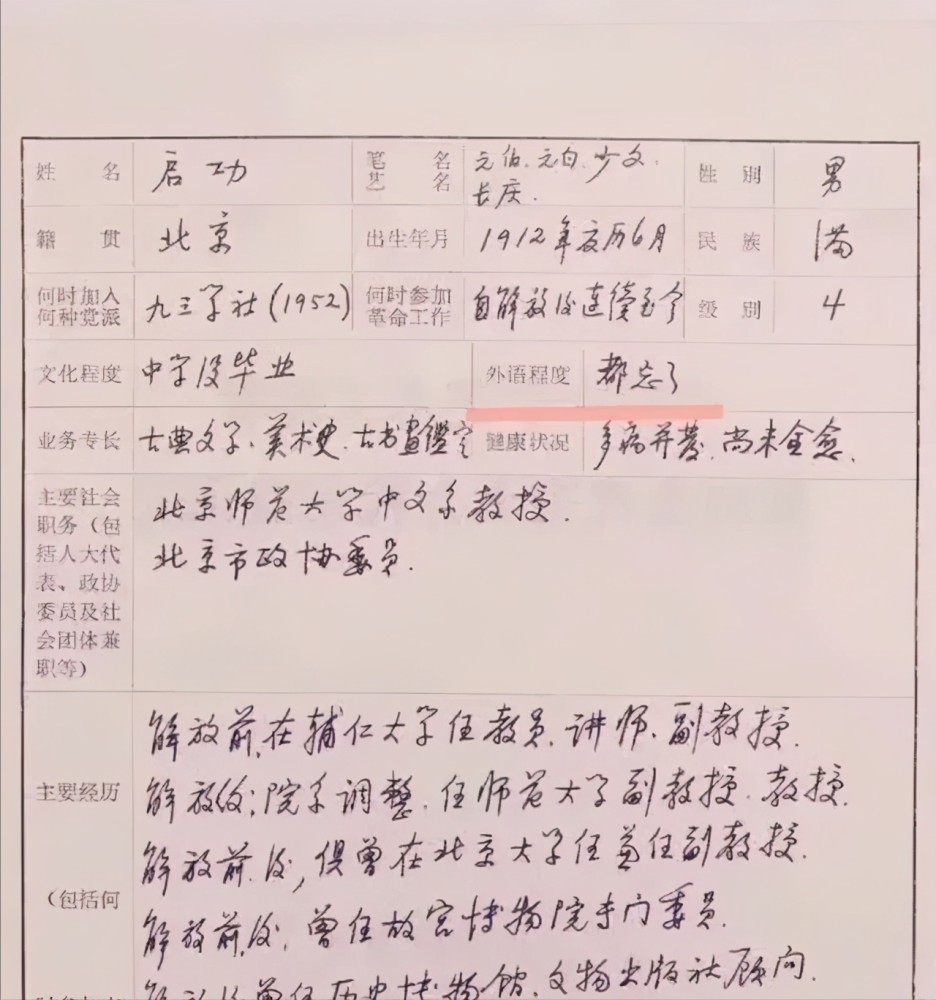 姓名 启功 笔(艺)名名 元伯、元白、少文、长庆. 性别 男
籍贯 北京 出生年月 1912年夏历6月 民族 满
何时加入何种党派 九三学社(1952) 何时参加革命工作 自解放后连续至今 级别 4
文化程度 中学没毕业 外语程度 都忘了
业务专长 古典文学、美术史、古书畫鑑定 健康状况 多病并發、尚未全愈、
主要社会
职务（包
括人大代
表、政协
委员及社
会团体兼
职等）
北京师范大学中文系教授.
北京市政协委员.
主要经历
（包括何
解放前,在辅仁大学任教员、讲师、副教授.
解放后;院系调整,任师范大学副教授、教授.
解放前后,俱曾在北京大学任兼任副教授.
解放前后,曾任故宫博物院专门委员.
解放后曾任历史博物馆、文物出版社顾问.